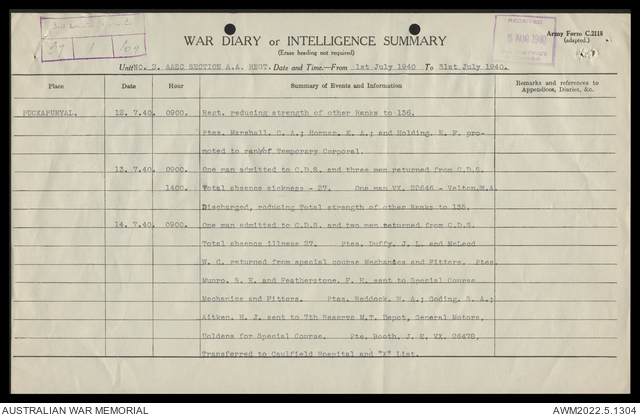 39 1 69
RECEIVED
5 AUG 1940
Army Form C.2118
(adapted.)
WAR DIARY or INTELLIGENCE SUMMARY
(Erase heading not required)
Unit NO. 2. AASC SECTION A.A. REGT. Date and Time.—From 1st July 1940 To 31st July 1940.
Place Date Hour Summary of Events and Information Remarks and references to Appendices, Diaries, &c.
PUCKAPUNYAL. 12. 7.40. 0900. Regt. reducing strength of other Ranks to 136.
Ptes. Marshall, C. A.; Horner, K. A.; and Holding, E. F. pro-
moted to rank/of Temporary Corporal.
13. 7.40. 0900. One man admitted to C.D.S. and three men returned from C.D.S.
1400. Total absence sickness - 27. One man VX. 22646 - Velton.W.A.
Discharged, reducing Total strength of other Ranks to 135.
14. 7.40. 0900. One man admitted to C.D.S. and two men returned from C.D.S.
Total absence illness 27. Ptes. Duffy, J. L. and McLeod
W. C. returned from special course Mechanics and Fitters. Ptes.
Munro, S. E. and Featherstone, F. E. sent to Special Course
Mechanics and Fitters. Ptes. Haddock, W. A.; Goding, S. A.;
Aitken, H. J. sent to 7th Reserve M.T. Depot, General Motors,
Holdens for Special Course. Pte. Booth, J. E. VX. 26478,
Transferred to Caulfield Hospital and "X" List.
AUSTRALIAN WAR MEMORIAL
AWM2022.5.1304